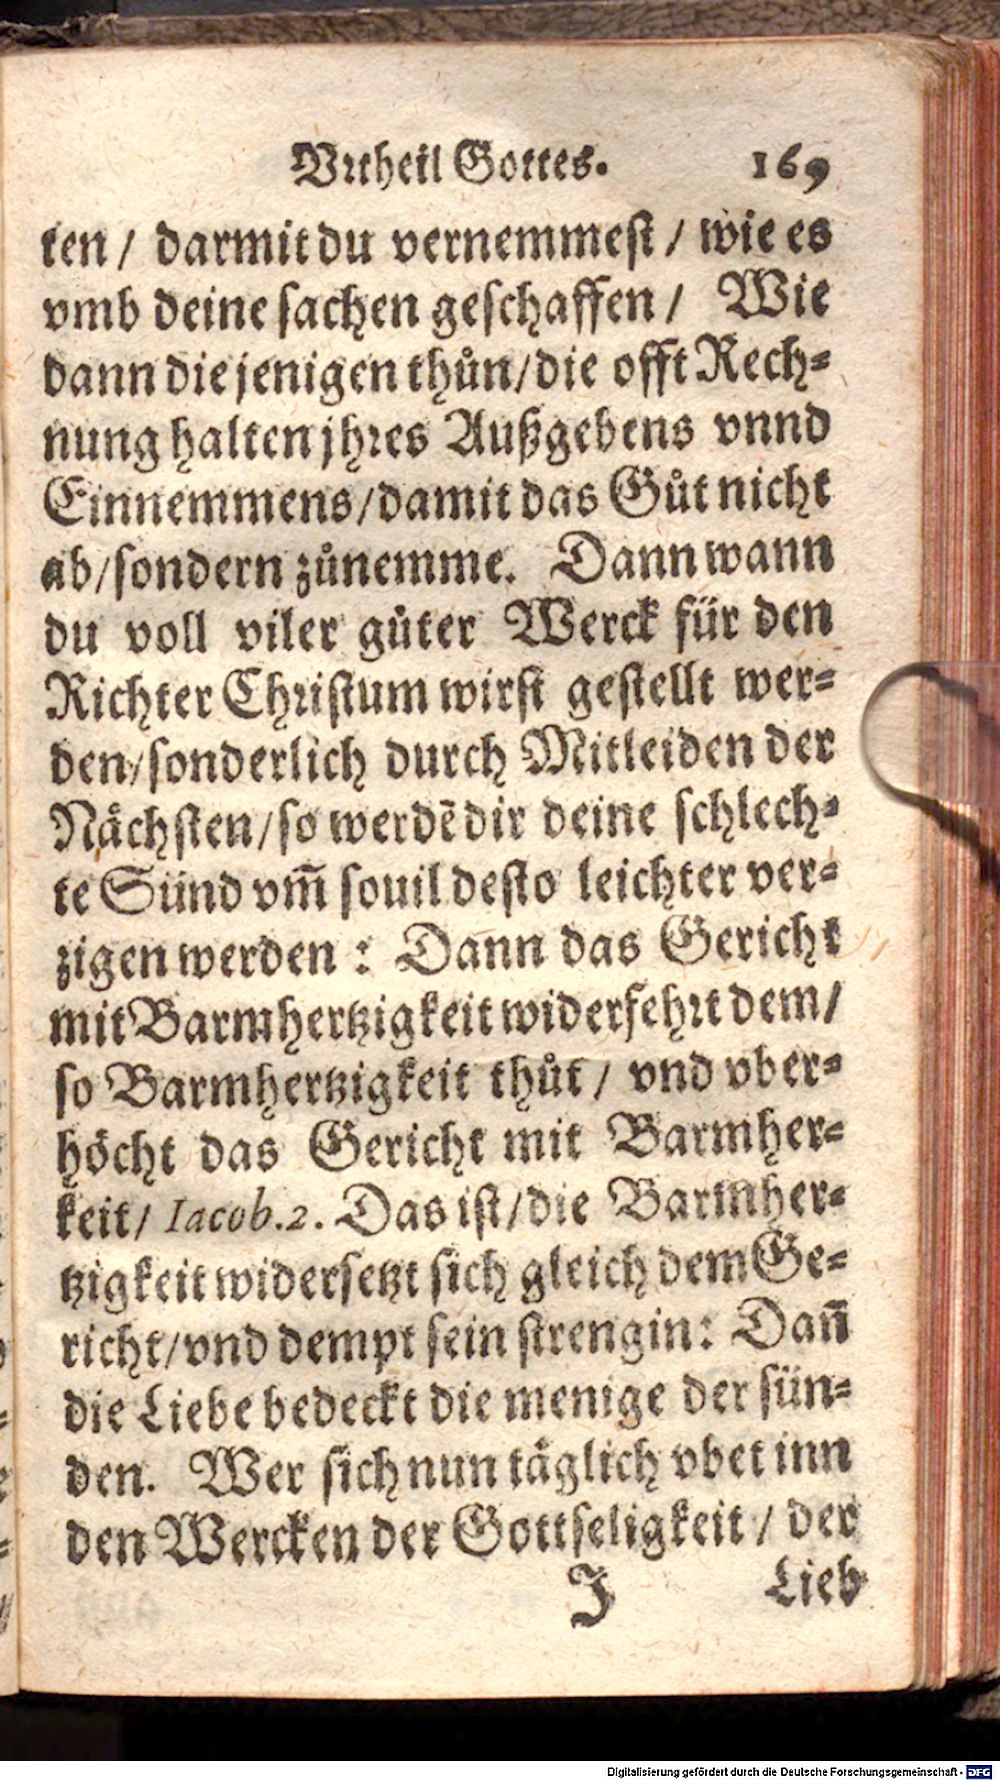 Vrtheil Gottes. 169
ten / darmit du vernemmest / wie es
vmb deine sachen geschaffen / Wie
dann die jenigen thůn/die offt Rech-
nung halten jhres Außgebens vnnd
Einnemmens/damit das Gůt nicht
ab/sondern zůnemme. Dann wann
du voll viler gůter Werck für den
Richter Christum wirst gestellt wer-
den/sonderlich durch Mitleiden der
Nächsten/so werdē dir deine schlech-
te Sünd vm̄ souil desto leichter ver-
zigen werden : Dann das Gericht
mit Barmhertzigkeit widerfehrt dem/
so Barmhertzigkeit thůt / vnd vber-
höcht das Gericht mit Barmher-
keit/ Iacob.2. Das ist/die Barmher-
tzigkeit widersetzt sich gleich dem Ge-
richt/vnd dempt sein strengin: Dañ
die Liebe bedeckt die menige der sün-
den. Wer sich nun täglich vbet inn
den Wercken der Gottseligkeit / der
J Lieb
Digitalisierung gefördert durch die Deutsche Forschungsgemeinschaft - DFG